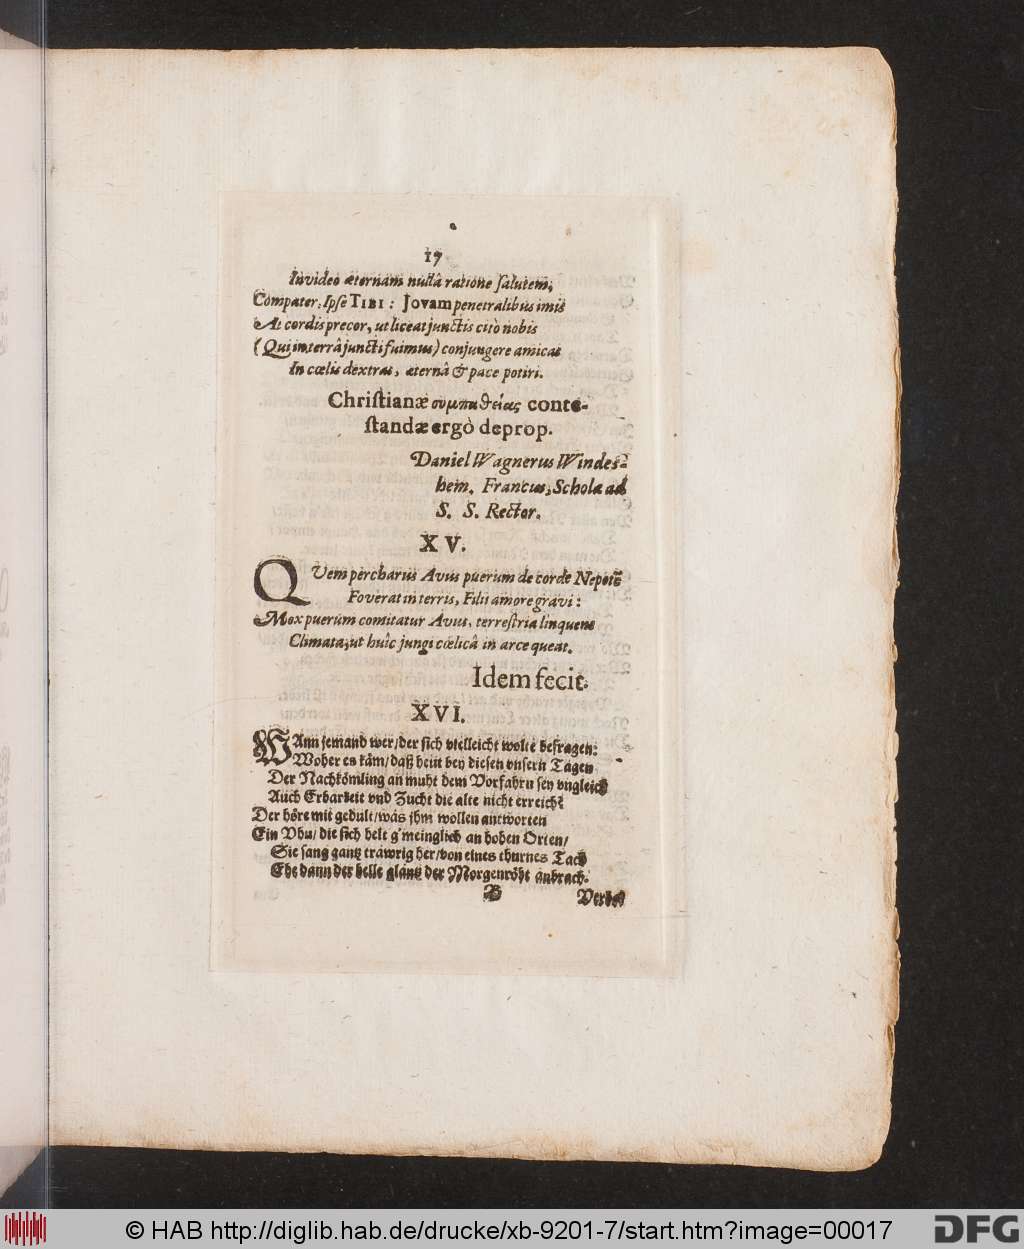 17
Invideo æternam nullâ ratione ſalutem,
Compater, Ipſe TIBI: Jovam penetralibus imis
At cordis precor, ut liceat junctis citò nobis
(Qui in terrâ juncti fuimus) conjungere amicas
In cœlis dextras, æternâ & pace potiri.
Chriſtianæ συμπαθείας conte-
ſtandæ ergò deprop.
Daniel Wagnerus Windes-
hem. Francus, Scholæ ad
S. S. Rector.
XV.
QVem percharus Avus puerum de corde Nepotē
Foverat in terris, Filii amore gravi:
Mox puerum comitatur Avus, terreſtria linquens
Climata, ut huîc jungi cœlicâ in arce queat.
Idem fecit.
XVI.
WAnn jemand wer/der ſich vielleicht wolte befragen:
Woher es käm/daß heut bey dieſen vnſern Tagen
Der Nachkömling an muht dem Vorfahrn ſey vngleich
Auch Erbarkeit vnd Zucht die alte nicht erreich?
Der höre mit gedult/was jhm wollen antworten
Ein Vhu/die ſich helt g'meinglich an hohen Orten/
Sie ſang gantz trawrig her/von eines thurnes Tach
Ehe dann der helle glantz der Morgenröht anbrach.
B
© HAB http://diglib.hab.de/drucke/xb-9201-7/start.htm?image=00017
DFG